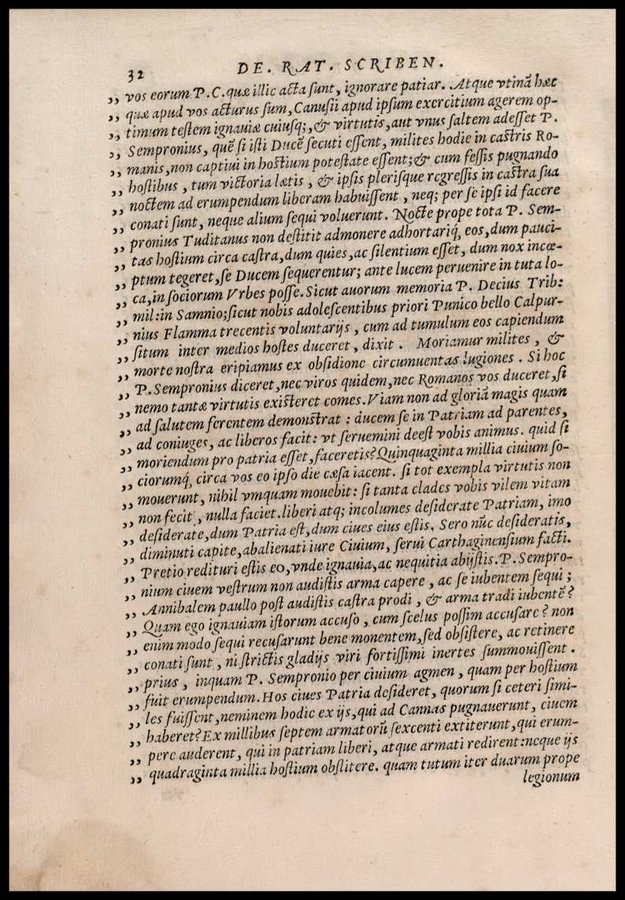 32 DE. RAT. SCRIBEN.
,, vos eorum P.C. quæ illic acta ſunt, ignorare patiar. Atque vtinã hæc
,, quæ apud vos acturus ſum, Canuſii apud ipſum exercitium agerem op-
,, timum teſtem ignauiæ cuiuſq;, & virtutis, aut vnus ſaltem adeſſet P.
,, Sempronius, quẽ ſi iſti Ducẽ ſecuti eſſent, milites hodie in caſtris Ro-
,, manis, non captiui in hoſtium poteſtate eſſent; & cum feſſis pugnando
,, hoſtibus, tum victoria lætis, & ipſis plerisque regreſſis in caſtra ſua
,, noctem ad erumpendum liberam habuiſſent, neq; per ſe ipſi id facere
,, conati ſunt, neque alium ſequi voluerunt. Nocte prope tota P. Sem-
,, pronius Tuditanus non deſtitit admonere adhortariq́, eos, dum pauci-
,, tas hoſtium circa caſtra, dum quies, ac ſilentium eſſet, dum nox incœ-
,, ptum tegeret, ſe Ducem ſequerentur; ante lucem peruenire in tuta lo-
,, ca, in ſociorum Vrbes poſſe. Sicut auorum memoria P. Decius Trib:
,, mil: in Samnio; ſicut nobis adoleſcentibus priori Punico bello Calpur-
,, nius Flamma trecentis voluntarijs, cum ad tumulum eos capiendum
,, ſitum inter medios hoſtes duceret, dixit. Moriamur milites, &
,, morte noſtra eripiamus ex obſidione circumuentas lugiones. Si hoc
,, P. Sempronius diceret, nec viros quidem, nec Romanos vos duceret, ſi
,, nemo tantæ virtutis exiſteret comes. Viam non ad gloriã magis quam
,, ad ſalutem ferentem demonſtrat: ducem ſe in Patriam ad parentes,
,, ad coniuges, ac liberos facit: vt ſeruemini deeſt vobis animus. quid ſi
,, moriendum pro patria eſſet, faceretis? Quinquaginta millia ciuium ſo-
,, ciorumq́, circa vos eo ipſo die cæſa iacent. ſi tot exempla virtutis non
,, mouerunt, nihil vmquam mouebit: ſi tanta clades vobis vilem vitam
,, non fecit, nulla faciet. liberi atq; incolumes deſiderate Patriam, imo
,, deſiderate, dum Patria eſt, dum ciues eius eſtis. Sero nũc deſideratis,
,, diminuti capite, abalienati iure Ciuium, ſerui Carthaginenſium facti.
,, Pretio redituri eſtis eo, vnde ignauia, ac nequitia abijſtis. P. Sempro-
,, nium ciuem veſtrum non audiſtis arma capere, ac ſe iubentem ſequi;
,, Annibalem paullo poſt audiſtis caſtra prodi, & arma tradi iubentẽ?
,, Quam ego ignauiam iſtorum accuſo, cum ſcelus poſſim accuſare? non
,, enim modo ſequi recuſarunt bene monentem, ſed obſiſtere, ac retinere
,, conati ſunt, ni ſtrictis gladijs viri fortiſſimi inertes ſummouiſſent.
,, prius, inquam P. Sempronio per ciuium agmen, quam per hoſtium
,, fuit erumpendum. Hos ciues Patria deſideret, quorum ſi ceteri ſimi-
,, les fuiſſent, neminem hodie ex ijs, qui ad Cannas pugnauerunt, ciuem
,, haberet? Ex millibus ſeptem armatorũ ſexcenti extiterunt, qui erum-
,, pere auderent, qui in patriam liberi, atque armati redirent: neque ijs
,, quadraginta millia hoſtium obſtitere. quam tutum iter duarum prope
legionum